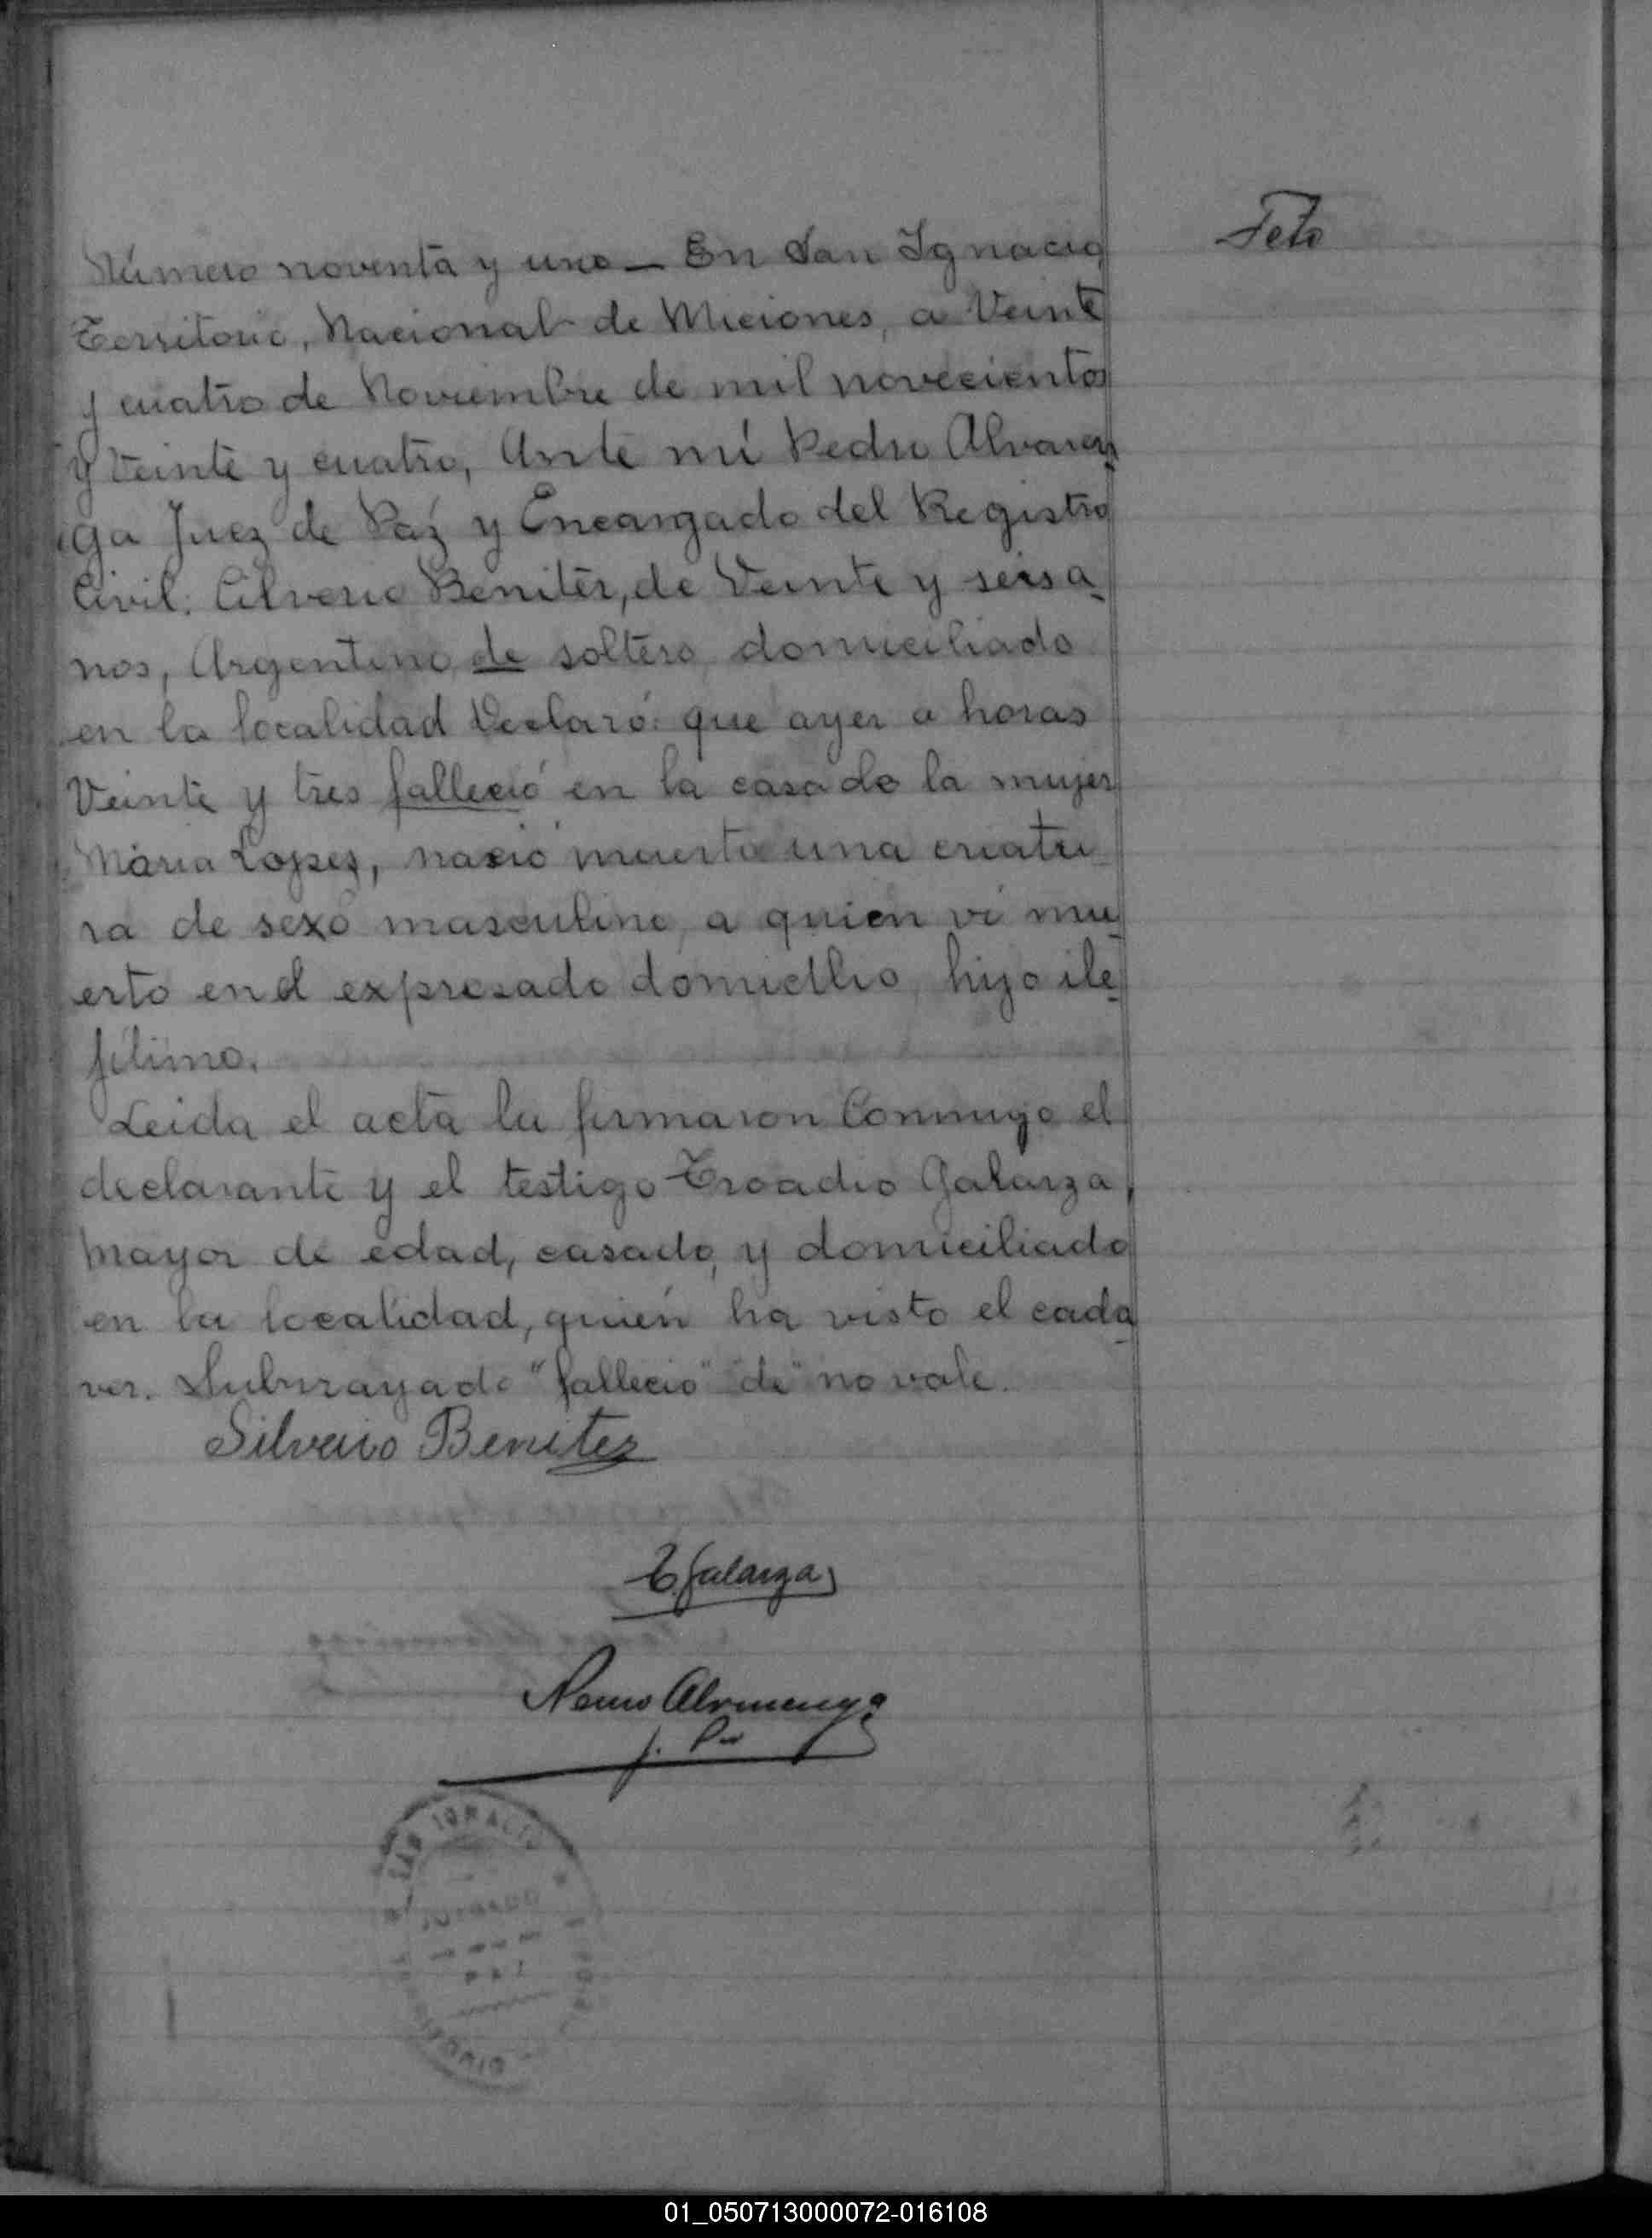 Feto
Número noventa y uno — En San Ignacio
Territorio, Nacional de Miciones, a Veinte
y cuatro de Noviembre de mil novecientos
y Veinte y cuatro, Ante mí Pedro Alvaren
ga Juez de Páz y Encargado del Registro
Civil: Cilverio Benitez, de Veinte y seis a
nos, Argentino de soltero, domiciliado
en la localidad Declaró: que ayer a horas
Veinte y tres falleció en la casa de la mujer
Maria Lopez, nació muerta una criatu
ra de sexo masculino, a quien ví mu
erto en el expresado domicilio, hijo ile
jitimo.
Leida el acta la firmaron Conmigo el
declarante y el testigo Troadio Galarza,
mayor de edad, casado, y domiciliado
en la localidad, quién ha visto el cada
ver. Subrrayado "fallecio" "de" no vale.
Silverio Benitez
T. Galarza
Pedro Alvarenga
J. P.
SAN IGNACIO
JUZGADO
PAZ
01_050713000072-016108